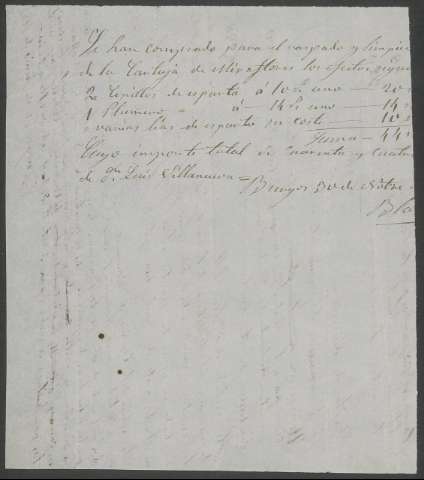 Se han comprado para el raspado y limpia
de la Cartuja de Miraflores los efectos
2 Cepillos de esparto á 10 rs uno — 20
1 Plumero " á — 14 rs uno — 14
varias lias de esparto su coste — 10
Suma — 44
Cuyo importe total de cuarenta y cuatro
de Dn Luis Villanueva = Burgos 30 de Nbre